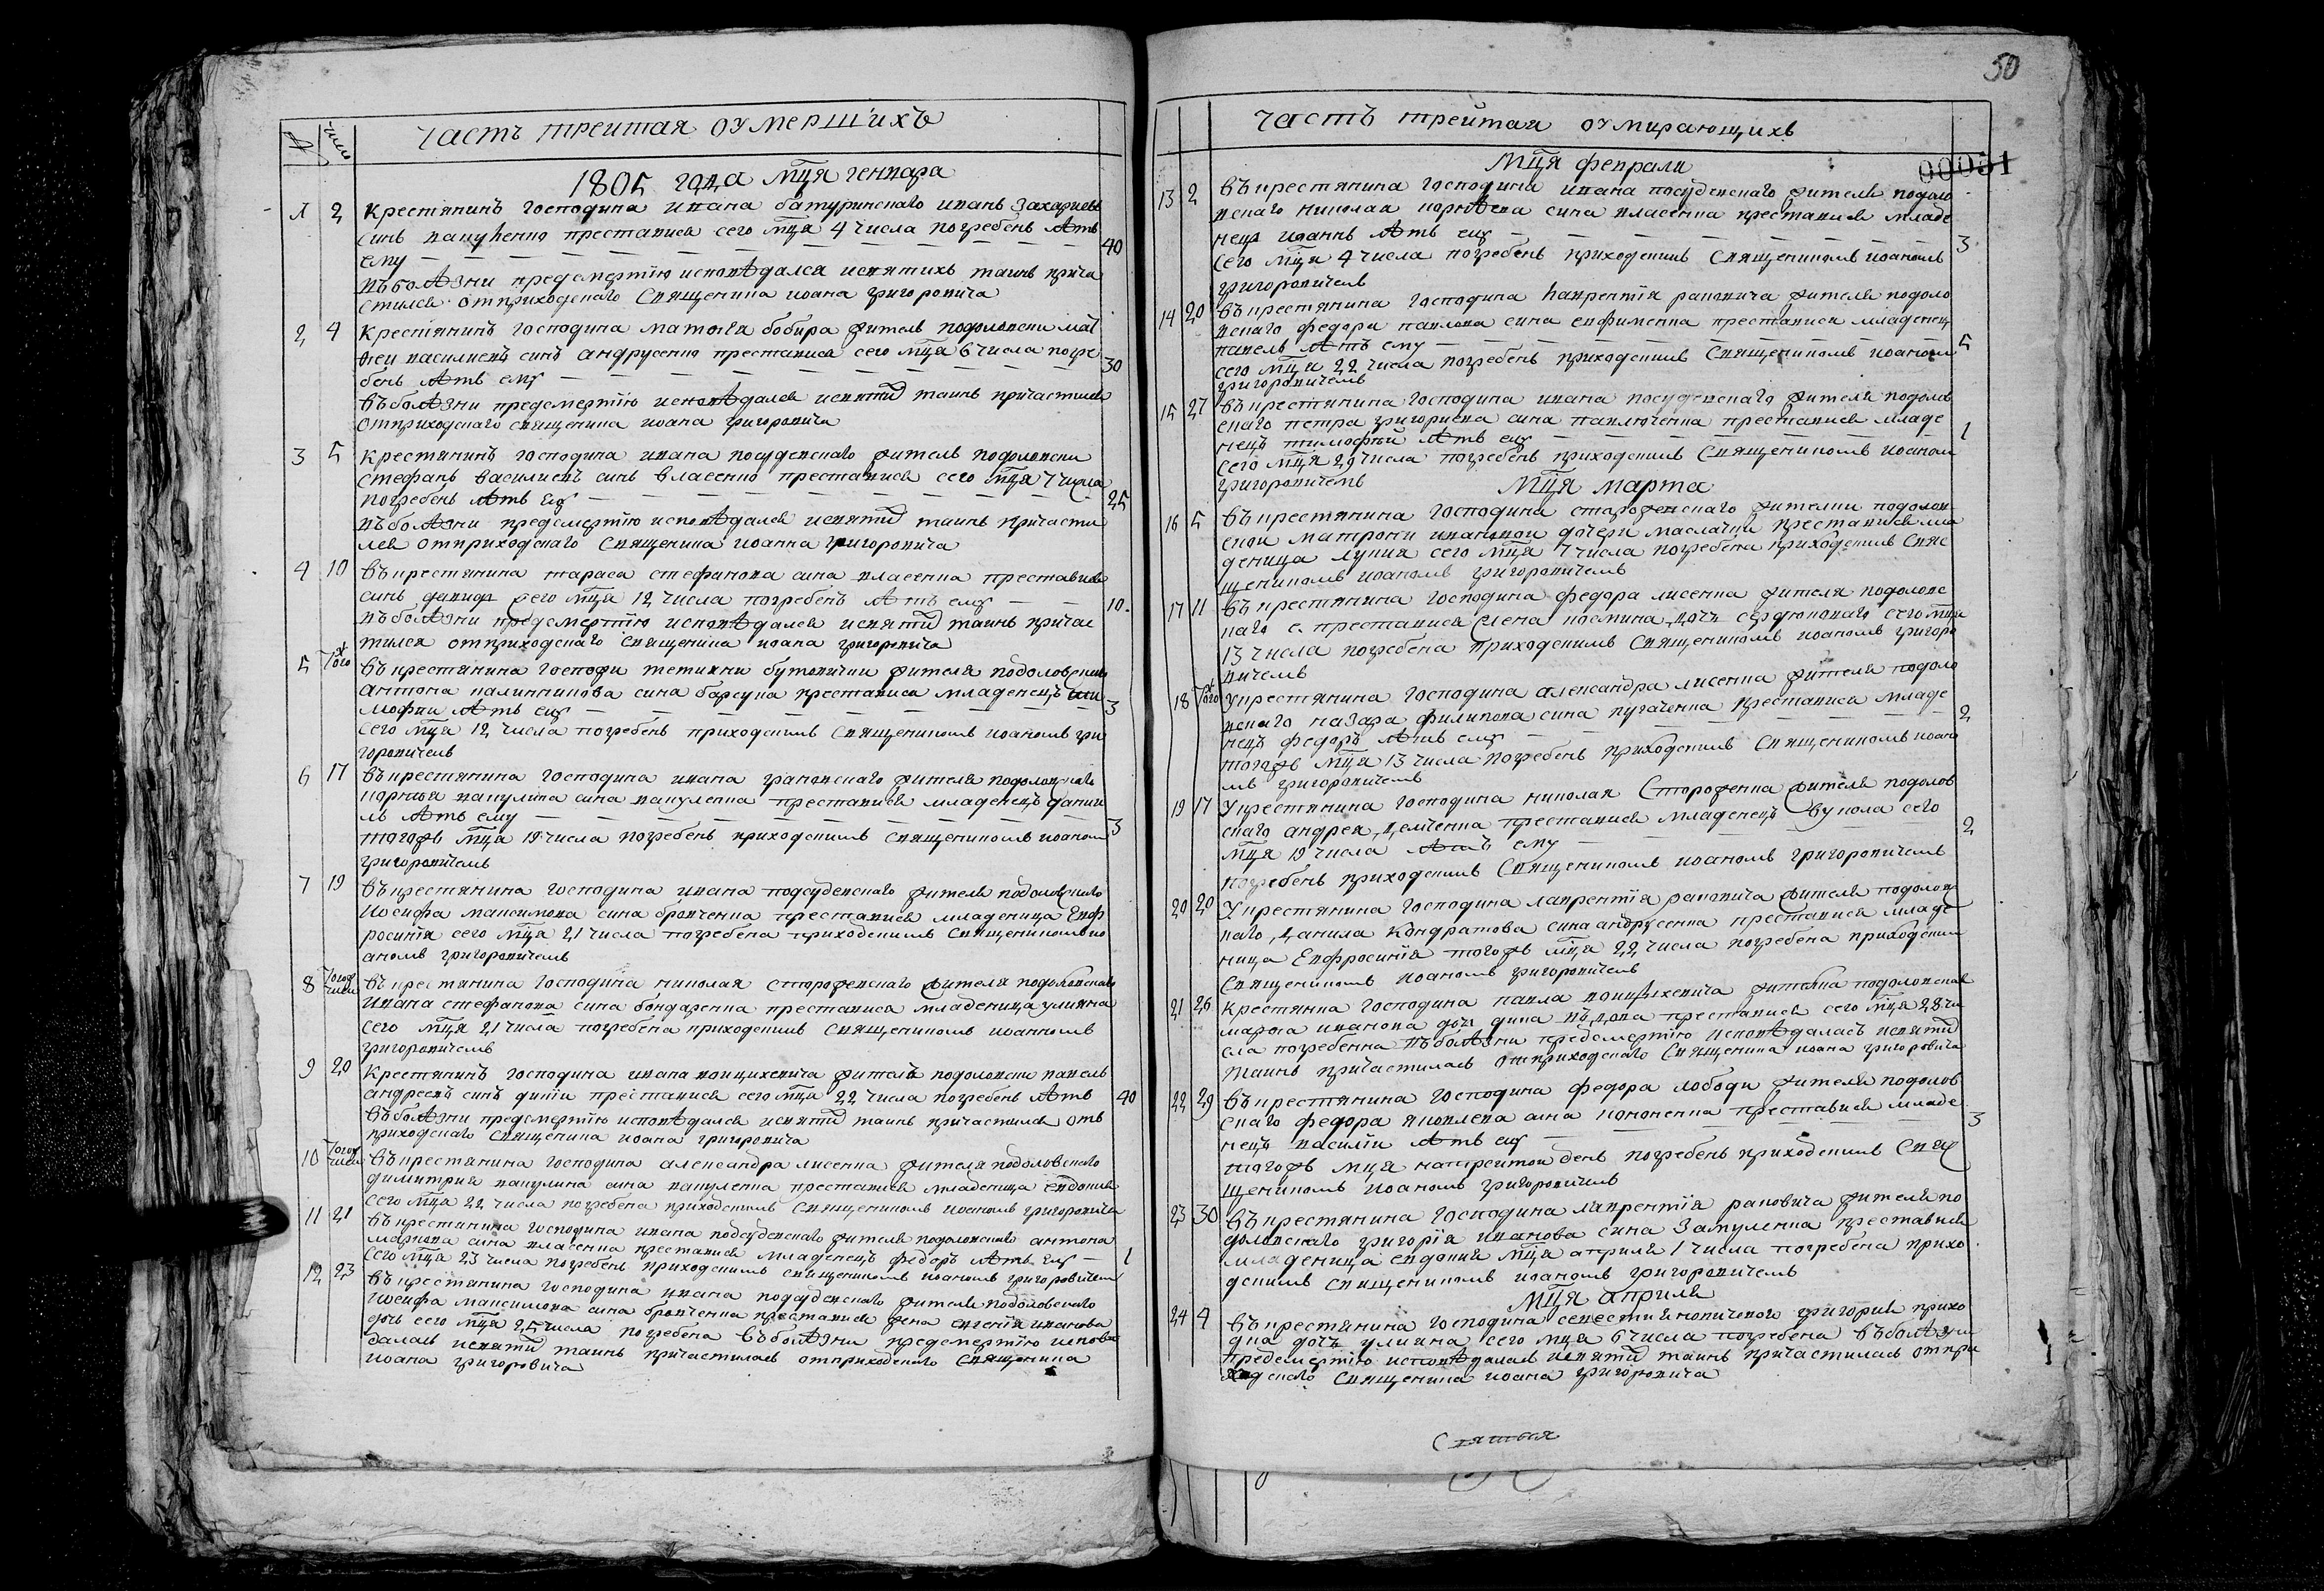 часть трейтая оумершихъ
число
1805 года мця генвара
1 2 крестянинъ господина ивана батуринскаго иванъ захариевъ
синъ преставися сего мця 4 числа погребенъ лѣтъ
ему 40
въболѣзни предсмертію исповѣдался исвятихъ таинъ прича
стился отприходскаго священика иоана григоровича
2 4 крестянинъ господина матвея бобира житель подоловски мат
вей василиевъ синъ андрусенко преставися сего мця 6 числа погре
бенъ лѣтъ ему 30
въболѣзни предсмертію исповѣдался исвятих таинъ причастился
отприходскаго священика иоана григоровича
3 5 крестянинъ господина ивана посудевскаго житель подоловски
стефанъ василиевъ синъ власенко преставися сего мця 7 числа
погребенъ лѣтъ ему 25
въболѣзни предсмертію исповѣдался исвятих таинъ причасти
лся отприходскаго священика иоанна григоровича
4 10 въкрестянина тараса стефанова сина власенка преставися
синъ сего мця 12 числа погребенъ лѣтъ ему 10
въболѣзни предсмертію исповѣдался исвятих таинъ причас
тился отприходскаго священика иоана григоровича
5 тогож въкрестянина госпожи бутовички жителя подоловскаго
антона калинникова сина барсука преставися младенецъ тим
мофии лѣтъ ему 3
сего мця 12 числа погребенъ приходскимъ священикомъ иоаномъ гри
горовичемъ
6 17 въкрестянина господина ивана жителя подоловскаго
корнѣя вакулина сина вакуленка преставися младенецъ дании
лъ лѣтъ ему 3
тогожъ мця 19 числа погребенъ приходскимъ священикомъ иоаном
григоровичемъ
7 19 въкрестянина господина ивана подсудевскаго жителя подоловскаго
иосифа максимова сина бровченка преставися младеница евф
росинія сего мця 21 числа погребена приходскимъ священикомъ ио
аномъ григоровичемъ
8 тогож числа въкрестянина господина николая стороженскаго жителя подоловскаго
ивана стефанова сина бондаренка преставися младеница улияна
сего мця 21 числа погребена приходскимъ священикомъ иоанномъ
григоровичемъ
9 20 крестянинъ господина ивана житель подоловски павелъ
андреевъ синъ преставися сего мця 22 числа погребенъ лѣтъ 40
въболѣзни предсмертію исповѣдался исвятих таинъ причастился отъ
приходскаго священика иоана григоровича
10 тогож числа въкрестянина господина александра лисенка жителя подоловскаго
димитрия вакулина сина вакуленка преставися младеница евдокия
сего мця 22 числа погребена приходскимъ священикомъ иоаномъ григоровичем
11 21 въкрестянина господина ивана подсудевскаго жителя подоловскаго антона
маркова сина власенка преставися младенецъ федоръ лѣтъ ему 1
сего мця 23 числа погребенъ приходскимъ священикомъ иоаномъ григоровичем
12 23 въкрестянина господина ивана подсудевскаго жителя подоловскаго
иосифа максимова сина бровченка преставися жена евгенія иванова
дочъ сего мця 25 числа погребена въболѣзни предсмертію испове
далась исвятих таинъ причастилась отприходскаго священика
иоана григоровича
50
00051
часть трейтая оумирающихъ
мця феврали
13 2 въкрестянина господина ивана посудевскаго жителя подоло
вскаго николая корнѣева сина власенка преставися младе
нец иоаннъ лѣтъ ему 3
сего мця 4 числа погребенъ приходскимъ священикомъ иоаномъ
григоровичемъ
14 20 въкрестянина господина лаврентія раковича жителя подоло
вскаго федора павлова сина евфименка преставися младенец
павелъ лѣтъ ему 5
сего мця 22 числа погребенъ приходскимъ священикомъ иоаном
григоровичемъ
15 27 въкрестянина господина ивана посудевскаго жителя подолов
скаго петра григориева сина павлюченка преставися младе
нецъ тимофѣй лѣтъ ему 1
сего мця 29 числа погребенъ приходскимъ священикомъ иоаном
григоровичемъ
мця марта
16 5 въкрестянина господина стороженскаго жителки подолов
скои матрони ивановои дочери маслачки преставися мла
деница лукия сего мця 7 числа погребена приходскимъ свяс
щеникомъ иоаномъ григоровичемъ
17 11 въкрестянина господина федора лисенка жителя подоловс
каго с. преставися елена козмина дочъ сердюковаго сего мця
13 числа погребена приходскимъ священикомъ иоаномъ григоро
вичемъ
18 тогож укрестянина господина александра лисенка жителя подоло
вскаго назара филипова сина пугаченка преставися младе
нецъ федоръ лѣтъ ему 2
тогожъ мця 13 числа погребенъ приходскимъ священикомъ иоано
мъ григоровичемъ
19 17 укрестянина господина николая стороженка жителя подолов
скаго андрея демченка преставися младенецъ вукола сего
мця 19 числа лѣтъ ему 2
погребенъ приходскимъ священикомъ иоаномъ григоровичемъ
20 20 укрестянина господина лаврентія раковича жителя подолов
каго данила кондратова сина андрусенка преставися младе
ница евфросинія тогожъ мця 22 числа погребена приходским
священикомъ иоаномъ григоровичемъ
21 26 крестянка господина павла жителка подоловская
марфа иванова доч вдова преставися сего мця 28 чи
сла погребенна въболѣзни предсмертію исповѣдалась исвятих
таинъ причастилась отприходскаго священика иоана григоровича
22 29 въкрестянина господина федора лободи жителя подолов
скаго федора яковлева сина кононенка преставися младе
нецъ василіи лѣтъ ему 3
тогожъ мця натрейтои день погребенъ приходскимъ свя
щеникомъ иоаномъ григоровичемъ
23 30 въкрестянина господина лаврентія раковича жителя по
доловскаго григорія иванова сина закуленка преставися
младеница евдокия мця априля 1 числа погребена прихо
дскимъ священикомъ иоаномъ григоровичемъ
мця априля
24 4 въкрестянина господина григория
дочъ улияна сего мця 6 числа погребена въболѣзни
предсмертію исповѣдалась исвятих таинъ причастилась отпри
ходскаго священика иоана григоровича